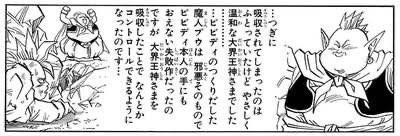 つぎに
吸収されてしまったのは
ふとっていたけど やさしく
温和な大界王神さまでした
……ビビディのつくりだした
魔人ブウは 邪悪そのもので
ビビディ本人の手にも
おえない失敗作だったの
ですが 大界王神さまを
吸収したことで なんとか
コントロールできるように
なったのです…